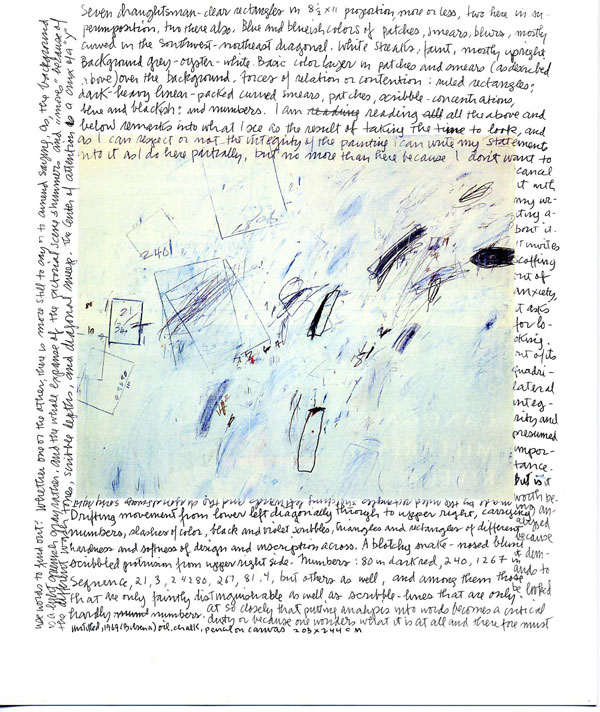 Seven draughtsman-clear rectangles in 8½ x 11 proportion, more or less, two here in su-
perimposition, two there also. Blue and blueish colors of patches, smears, blurs, mostly
curved in the Southwest-northeast diagonal. White streaks, faint, mostly upright
Background grey-oyster-white. Basic color layer in patches and smears (as described
above) over the background, forces of relation or contention: ruled rectangles;
dark-heavy linear-packed curved smears, patches, scribble-concentrations,
blue and blackish; and numbers. I am reading reading all all the above and
below remarks into what I see as the result of taking the time to look, and
as I can respect or not the integrity of the painting I can write my statement
into it as I do here partially, but no more than here because I don't want to
cancel
it with
my wri-
ting a-
bout it.
It invites
scoffing
out of
anxiety,
it asks
for lo-
oking.
out of its
quadri-
lateral
integ-
rity and
presumed
impor-
tance.
But is it
worth be-
ing an-
alyzed
because
it dem-
ands to
be looked
at so closely that putting analysis into words becomes a critical
duty or because one wonders what it is at all and therefore must
use words to find out? Whether one or the other, there is more still to say or to amend saying, as, the background
is a light greenish gray rather. and the whole expanse of the pictorial scene shimmers and "moves" because of
the different words, tones, scribble depths, and diagonal sweep. The center of attention is a crux of a "y"
2401
21
Drifting movement from lower left diagonally through to upper right, carrying
numbers, slashes of color, black and violet scribbles, triangles and rectangles of different
hardness and softness of design and inscription across. A blotchy snake-nosed blunt
scribbled protrusion from upper right side. Numbers: 80 in dark red, 240, 1267 in
Sequence, 21, 3, 24280, 267, 81.4, but others as well, and among them those
that are only faintly distinguishable as well as scribble-lines that are only
hardly numbers.
Untitled, 1969 (Bolsena) oil, chalk, pencil on canvas 203 x 244 cm